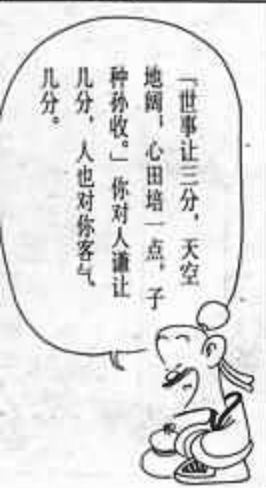 「世事让三分，天空
地阔，心田培一点，子
种孙收。」你对人谦让
几分，人也对你客气
几分。